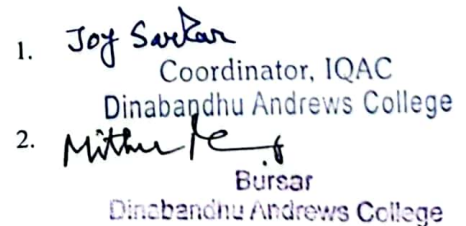 1. Joy Sarkar
Coordinator, IQAC
Dinabandhu Andrews College
2. Mithu
Bursar
Dinabandhu Andrews College